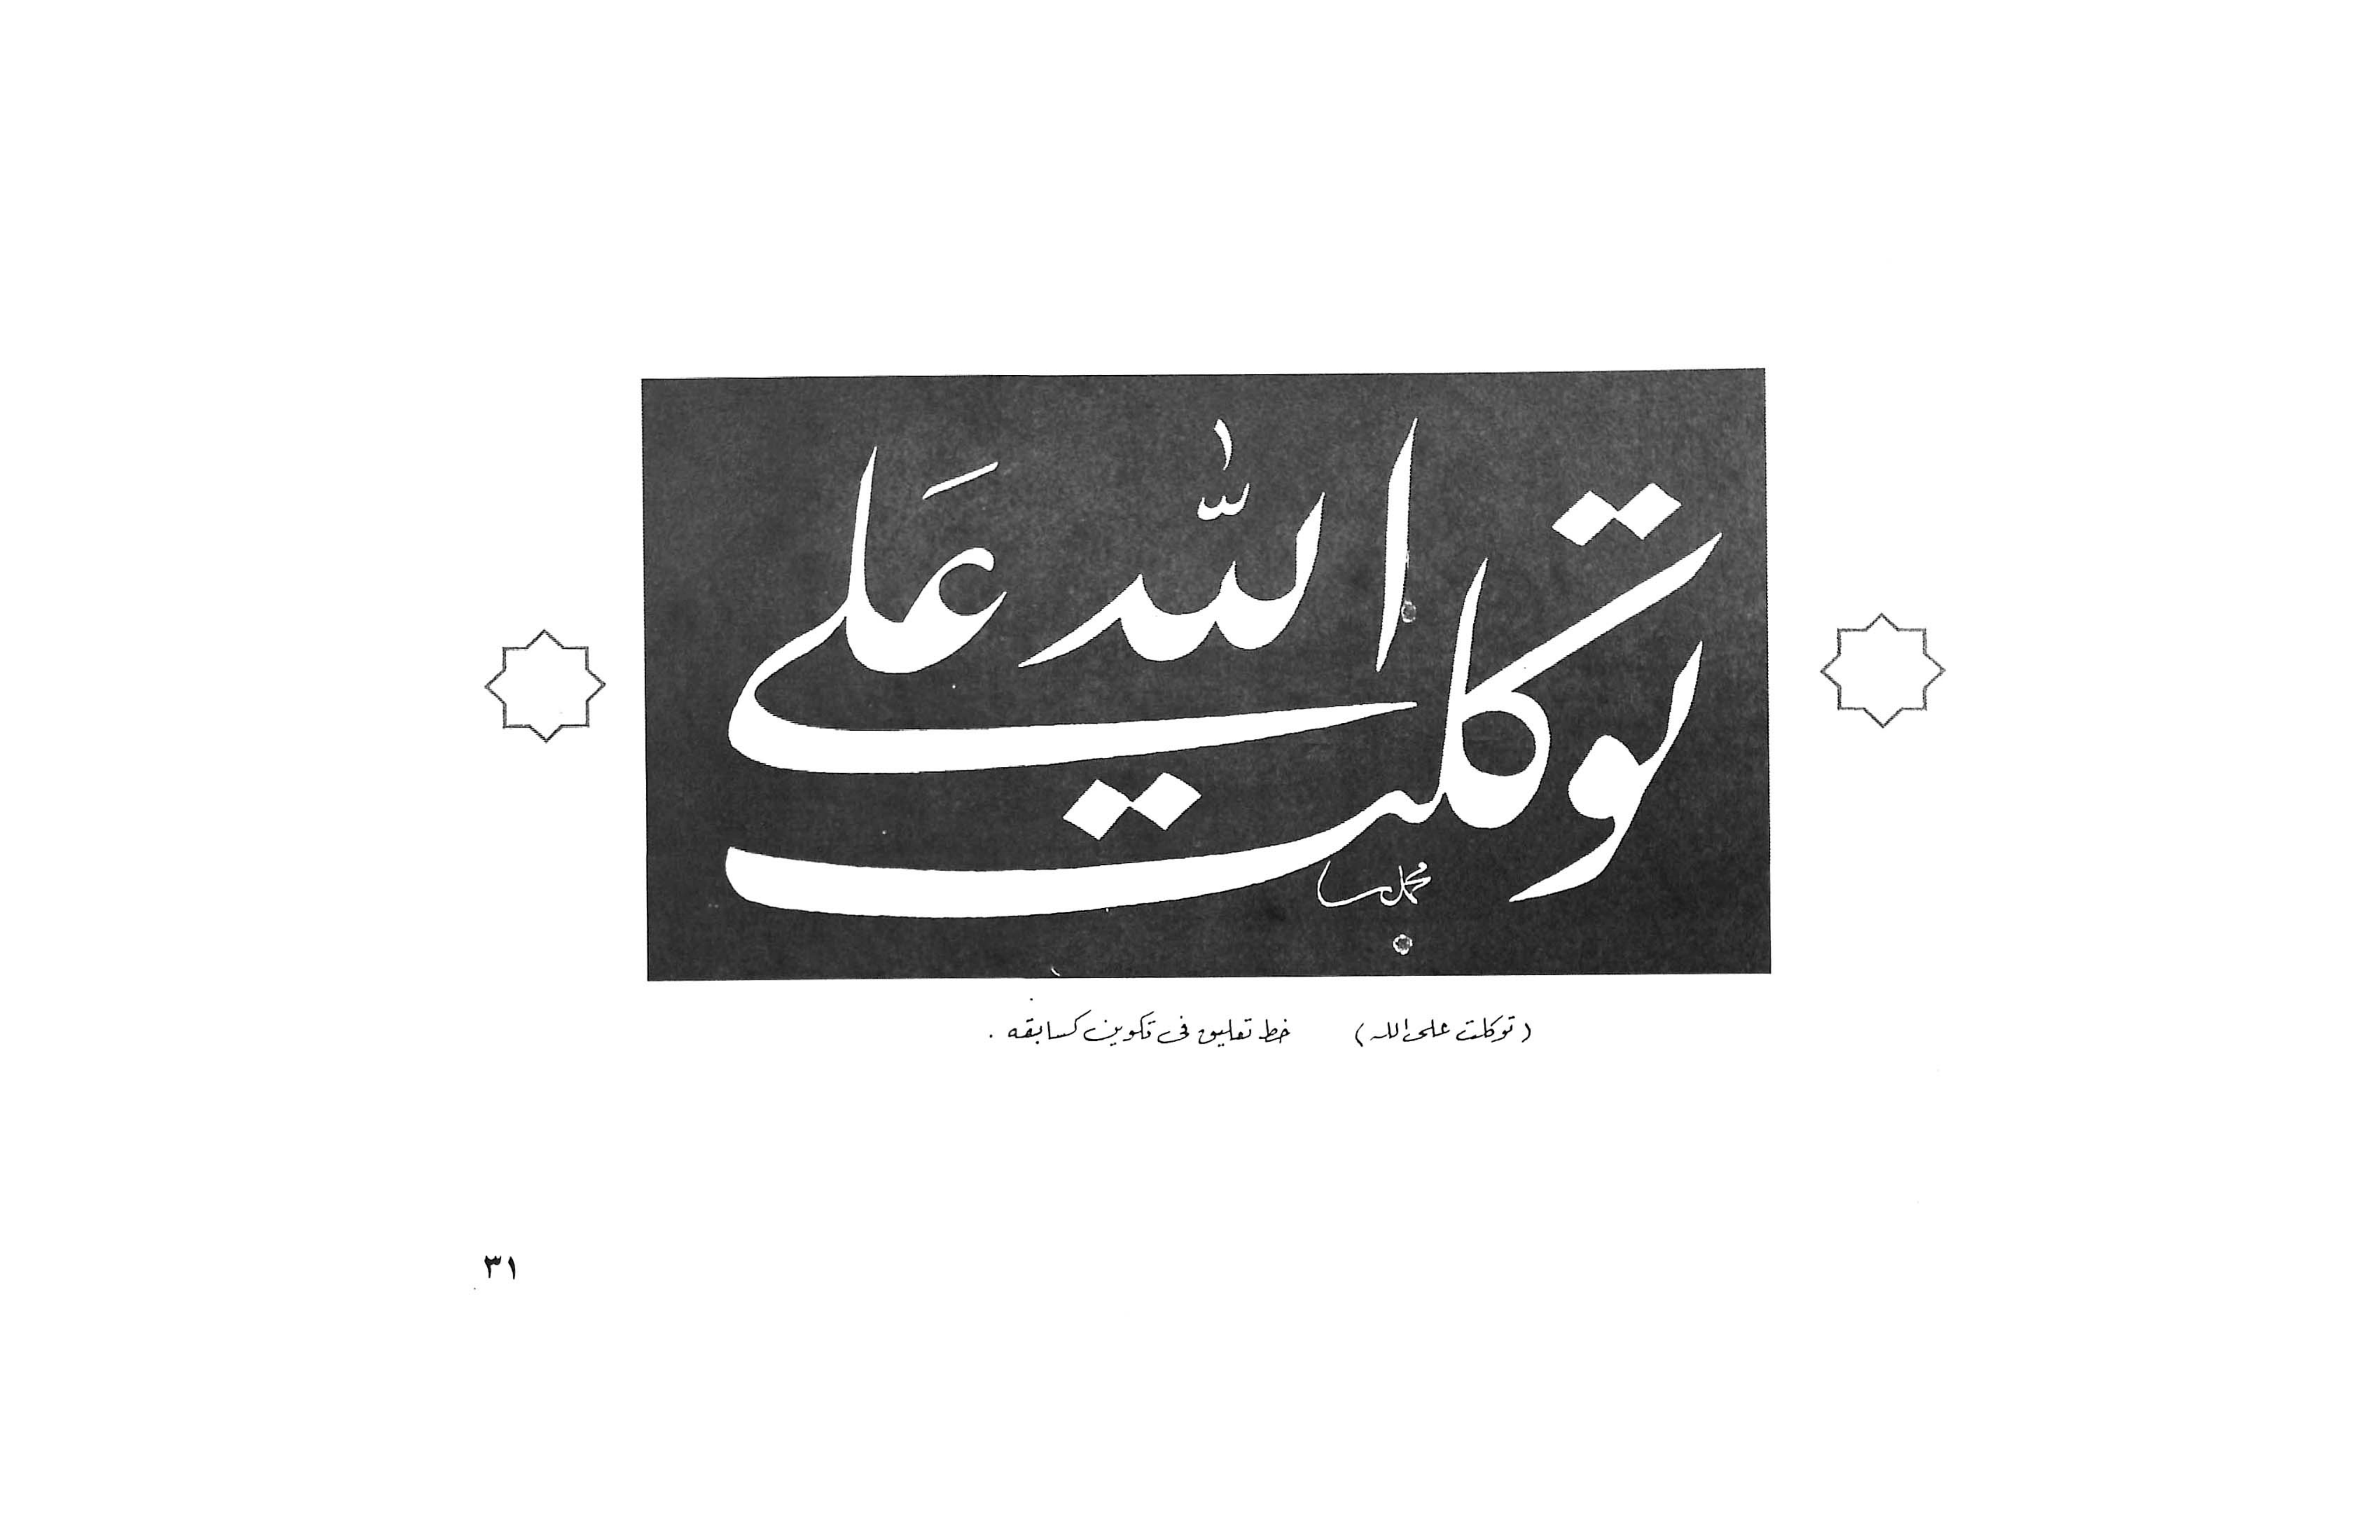 توكلت على الله
محمد
(توكلت على الله) خط تعليق فى تكوين كسابقه .
٣١